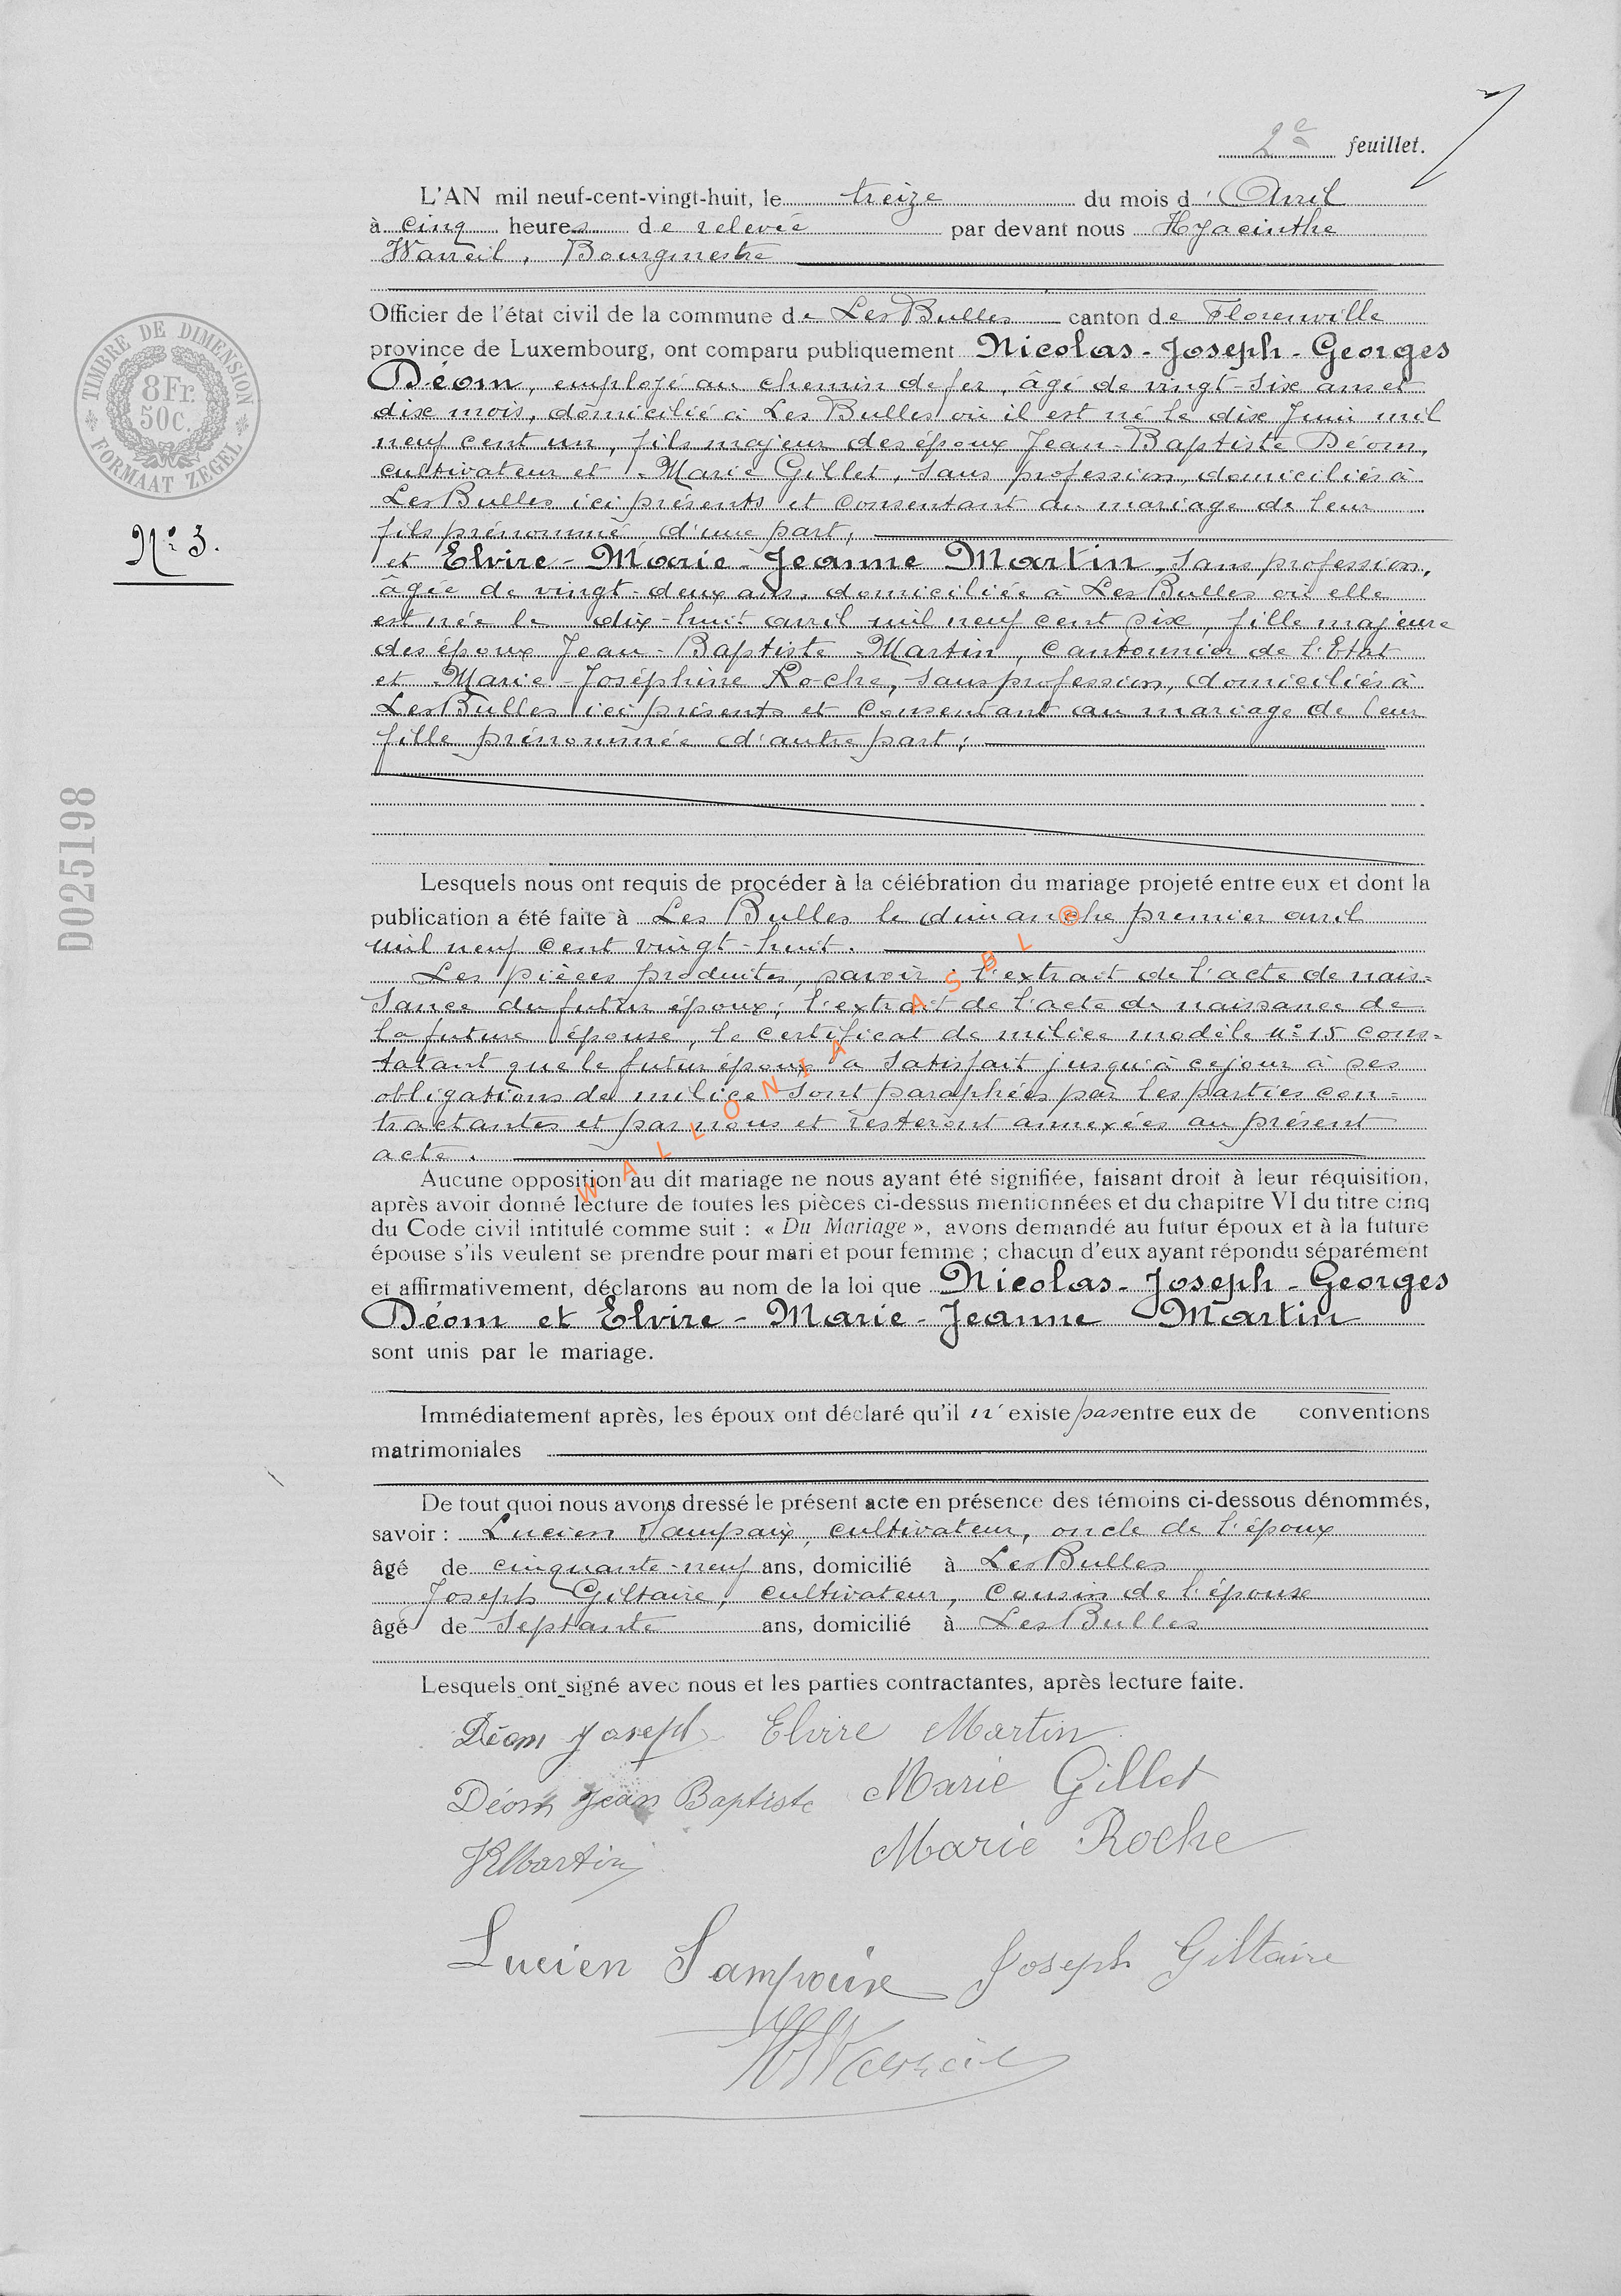 2e feuillet.
L'AN mil neuf-cent-vingt-huit, le treize du mois d'Avril
à cinq heures de relevée par devant nous Hyacinthe
Warreil, Bourgmestre
Officier de l'état civil de la commune de Les Bulles canton de Florenville
province de Luxembourg, ont comparu publiquement Nicolas-Joseph-Georges
Déom, employé au chemin de fer, âgé de vingt-six ans et
dix mois, domicilié à Les Bulles où il est né le dix Juin mil
neuf cent un, fils majeur des époux Jean-Baptiste Déom,
cultivateur et Marie Gillet, sans profession, domiciliés à
Les Bulles ici présents et consentant au mariage de leur
fils prénommé, d'une part,
et Elvire-Marie-Jeanne Martin, sans profession,
âgée de vingt-deux ans, domiciliée à Les Bulles où elle
est née le dix-huit avril mil neuf cent six, fille majeure
des époux Jean-Baptiste Martin, Cantonnier de l'Etat
et Marie-Joséphine Roche, sans profession, domiciliés à
Les Bulles ici présents et consentant au mariage de leur
fille prénommée d'autre part;
TIMBRE DE DIMENSION
8 Fr.
50 c.
FORMAAT ZEGEL
No 3.
D025198
Lesquels nous ont requis de procéder à la célébration du mariage projeté entre eux et dont la
publication a été faite à Les Bulles le dimanche premier avril
mil neuf cent vingt-huit.
Les pièces produites, savoir : l'extrait de l'acte de nais=
sance du futur époux; l'extrait de l'acte de naissance de
la future épouse, le certificat de milice modèle No 15 cons=
tatant que le futur époux a satisfait jusqu'à ce jour à ses
obligations de milice sont paraphées par les parties con=
tractantes et par nous et resteront annexées au présent
acte.
WALLONIA ASBL ®
Aucune opposition au dit mariage ne nous ayant été signifiée, faisant droit à leur réquisition,
après avoir donné lecture de toutes les pièces ci-dessus mentionnées et du chapitre VI du titre cinq
du Code civil intitulé comme suit : « Du Mariage », avons demandé au futur époux et à la future
épouse s'ils veulent se prendre pour mari et pour femme ; chacun d'eux ayant répondu séparément
et affirmativement, déclarons au nom de la loi que Nicolas-Joseph-Georges
Déom et Elvire-Marie-Jeanne Martin
sont unis par le mariage.
Immédiatement après, les époux ont déclaré qu'il n'existe pas entre eux de conventions
matrimoniales
De tout quoi nous avons dressé le présent acte en présence des témoins ci-dessous dénommés,
savoir : Lucien Sampaix, cultivateur, oncle de l'époux
âgé de cinquante-neuf ans, domicilié à Les Bulles
Joseph Giltaire, cultivateur, cousin de l'épouse
âgé de septante ans, domicilié à Les Bulles
Lesquels ont signé avec nous et les parties contractantes, après lecture faite.
Déom Joseph Elvire Martin
Déom Jean Baptiste Marie Gillet
JBMartin Marie Roche
Lucien Sampaix Joseph Giltaire
HWarreil